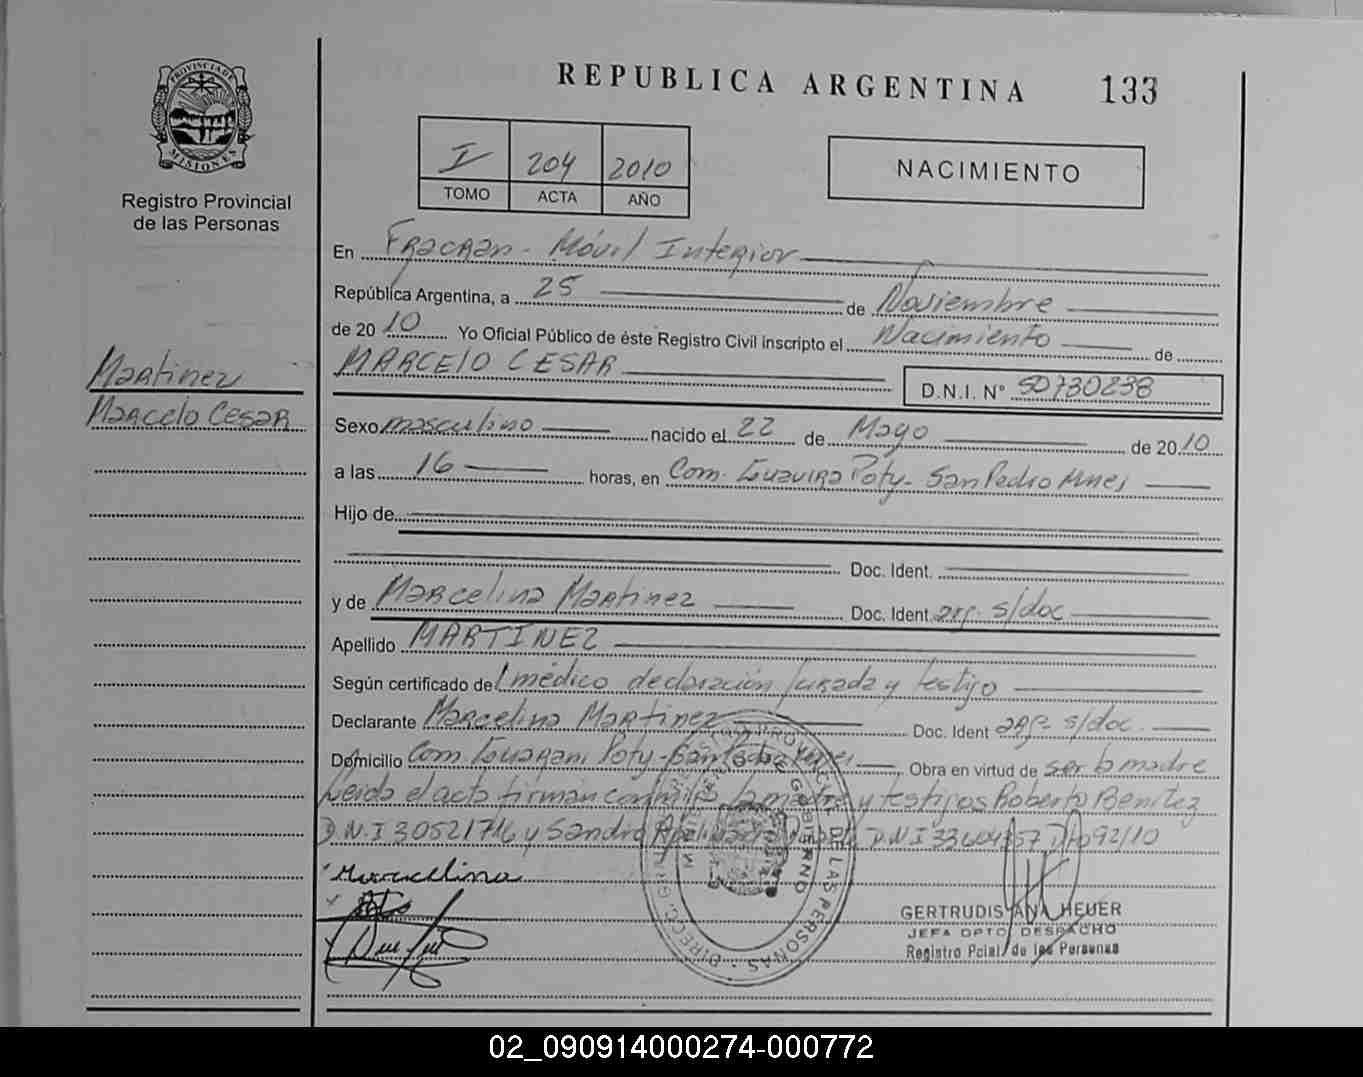 REPUBLICA ARGENTINA 133
PROVINCIA DE MISIONES
Registro Provincial
de las Personas
I 204 2010
TOMO ACTA AÑO
NACIMIENTO
En Fracran - Móvil Interior
República Argentina, a 25 de Noviembre
de 2010 Yo Oficial Público de éste Registro Civil inscripto el Nacimiento de
MARCELO CESAR D.N.I. Nº 50730238
Martinez
Marcelo Cesar
Sexo masculino nacido el 22 de Mayo de 2010
a las 16 horas, en Com. Guavira Poty - San Pedro Mnes
Hijo de
Doc. Ident.
y de Marcelina Martinez Doc. Ident. arg. s/doc
Apellido MARTINEZ
Según certificado del médico declaración jurada y testigo
Declarante Marcelina Martinez Doc. Ident arg. s/doc.
Domicilio Com Guarani Poty - San Pedro Obra en virtud de ser la madre
leida el acta firman conmigo la madre y testigos Roberto Benitez
D.N.I 30521716 y Sandro D.N.I 92/10
Marcelina
DIREC. GRAL. REGISTRO PROVINCIAL DE LAS PERSONAS
MINISTERIO DE GOBIERNO
GERTRUDIS ANA HEUER
JEFA DPTO DESPACHO
Registro Pcial. de las Personas
02_090914000274-000772